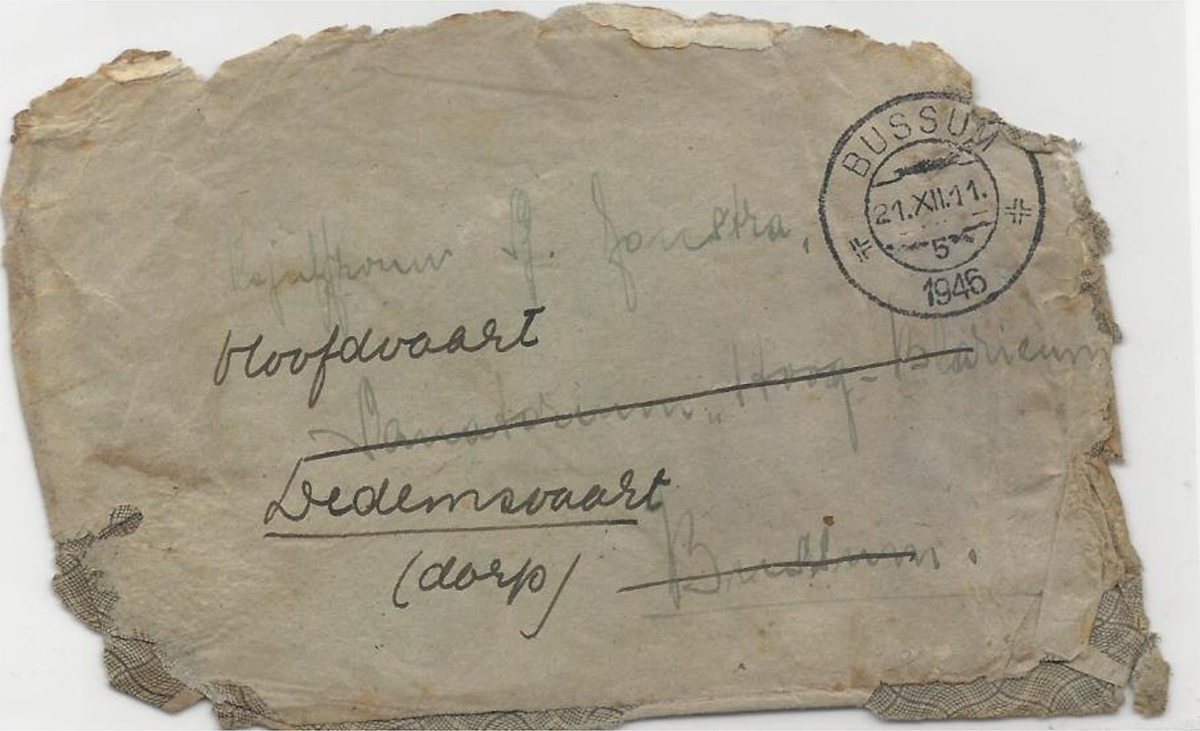 BUSSUM
21.XII.11.
5
1946
Jonstra,
Hoofdvaart
Sanatorium „Hoog-Blaricum
Dedemsvaart
(dorp)
Bussum.